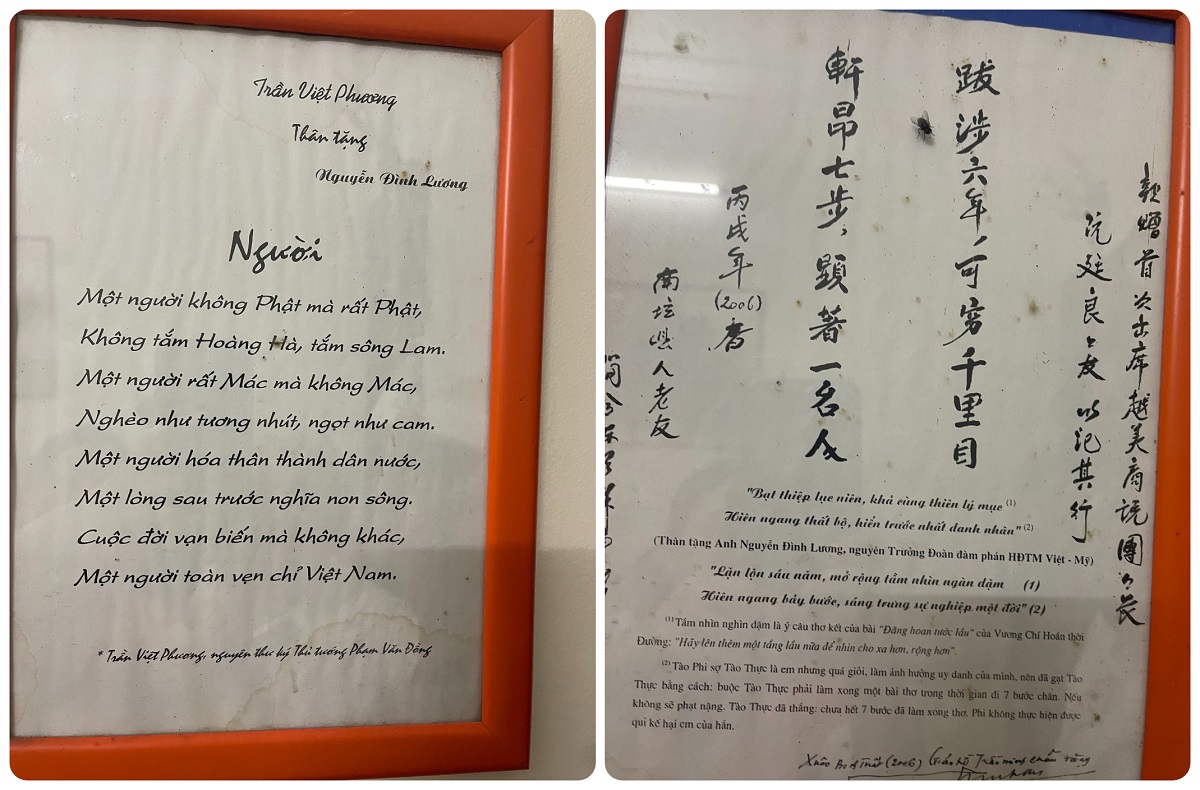 Trần Việt Phương
Thân tặng
Nguyễn Đình Lương
Người
Một người không Phật mà rất Phật,
Không tắm Hoàng Hà, tắm sông Lam.
Một người rất Mác mà không Mác,
Nghèo như tương nhút, ngọt như cam.
Một người hóa thân thành dân nước,
Một lòng sau trước nghĩa non sông.
Cuộc đời vạn biến mà không khác,
Một người toàn vẹn chỉ Việt Nam.
* Trần Việt Phương, nguyên thư ký Thủ tướng Phạm Văn Đồng
敬赠首次出席越美商说團〻長
阮廷良〻友 以記其行
跋涉六年,可穷千里目
軒昂七步,顕著一名人
丙戌年(2006)春
南坛县人老友
"Bạt thiệp lục niên, khả cùng thiên lý mục (1)
Hiên ngang thất bộ, hiển trước nhất danh nhân" (2)
(Thân tặng Anh Nguyễn Đình Lương, nguyên Trưởng Đoàn đàm phán HĐTM Việt - Mỹ)
"Lặn lộn sáu năm, mở rộng tầm nhìn ngàn dặm (1)
Hiên ngang bảy bước, sáng trưng sự nghiệp một đời" (2)
(1) Tầm nhìn nghìn dặm là ý câu thơ kết của bài "Đăng hoan tước lầu" của Vương Chí Hoán thời
Đường: "Hãy lên thêm một tầng lầu nữa để nhìn cho xa hơn, rộng hơn".
(2) Tào Phi sợ Tào Thực là em nhưng quá giỏi, làm ảnh hưởng uy danh của mình, nên đã gạt Tào
Thực bằng cách: buộc Tào Thực phải làm xong một bài thơ trong thời gian đi 7 bước chân. Nếu
không sẽ phạt nặng. Tào Thực đã thắng: chưa hết 7 bước đã làm xong thơ. Phi không thực hiện được
quỉ kế hại em của hắn.
Xuân Bính Tuất (2006) Giáo sư Trần Minh tặng